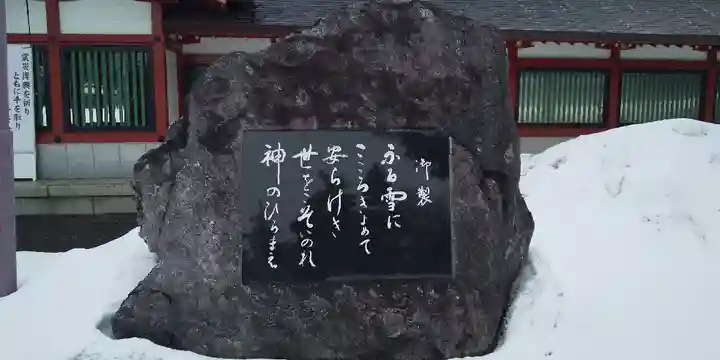 御製
ふる雪に
こころきよめて
安らけき
世をこそいのれ
神のひろまえ
震災復興を祈り
ともに手を取り